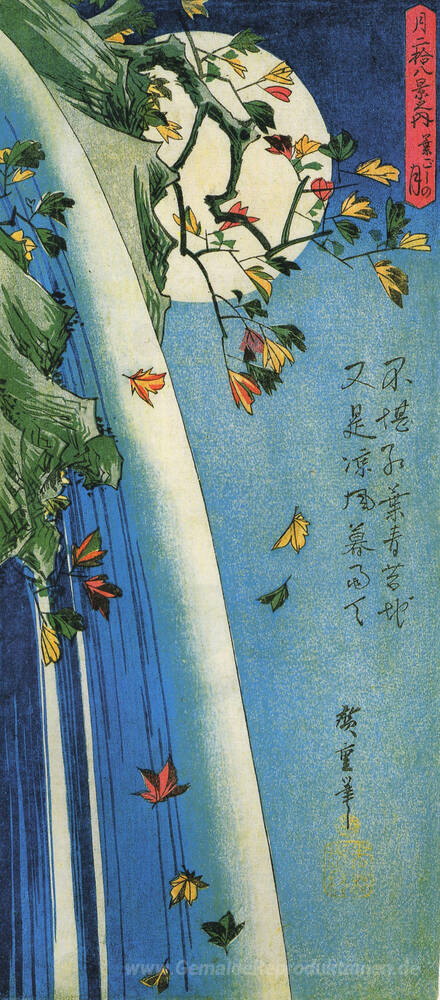 月二拾八景之内 葉ごしの月
不堪紅葉青苔地
又是涼風暮雨天
廣重筆
www.GemaldeReproduktionen.de